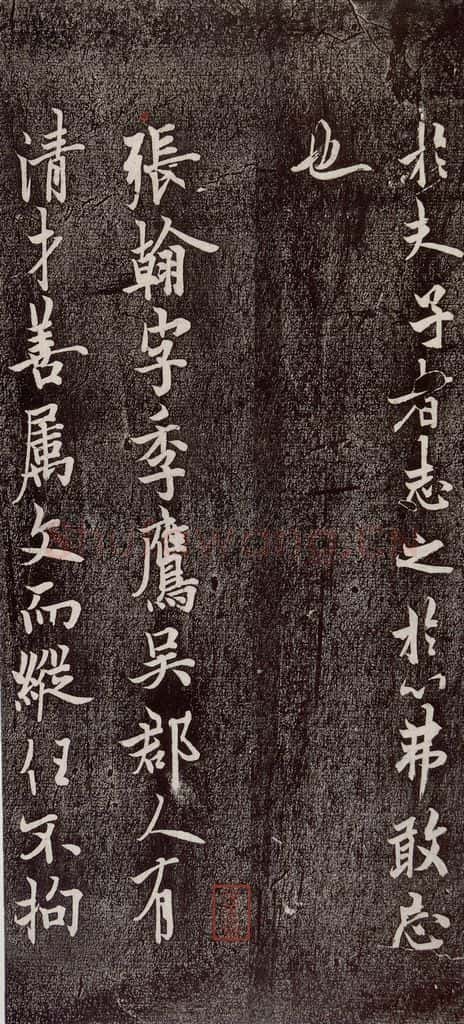 於夫子者志之於心弗敢忘
也
張翰字季鷹吳郡人有
清才善属文而縱任不拘